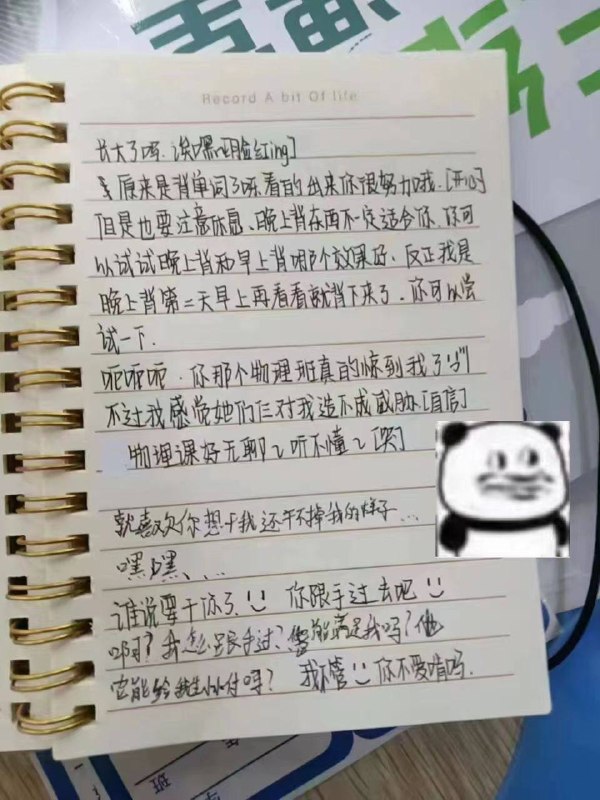 Record A bit Of life
长大了呀. 诶嘿[脸红ing]
原来是背单词了呀.看的出来你很努力哦.[开心]
但是也要注意休息、晚上背东西不一定适合你.你可
以试试晚上背和早上背哪个效果好、反正我是
晚上背第二天早上再看看就背下来了.你可以尝
试一下.
呃呃呃.你那个物理班真的惊到我了
不过我感觉她们仨对我造不成威胁[自信]
物理课好无聊~听不懂~[哭]
就喜欢你想干我还干不掉我的样子...
嘿嘿、...
谁说要干你了 你跟手过去吧
啊?我怎么跟手过?能满足我吗?他
它能给我生小小付吗? 我不管 你不爱啃吗.
班